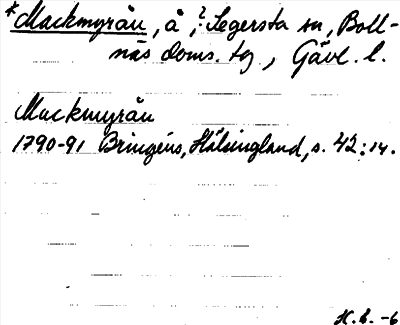 *Mackmyrån, å, i ? Segersta sn, Boll-
näs doms. tg, Gävl. l.
Mackmyrån
1790-91 Bringéus, Hälsingland, s. 42:14.